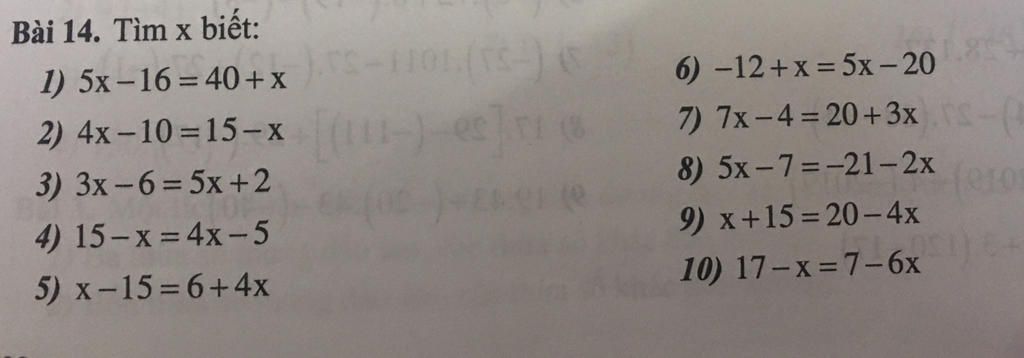 Bài 14. Tìm x biết:
1) 5x – 16 = 40 + x
2) 4x – 10 = 15 – x
3) 3x – 6 = 5x + 2
4) 15 – x = 4x – 5
5) x – 15 = 6 + 4x
6) –12 + x = 5x – 20
7) 7x – 4 = 20 + 3x
8) 5x – 7 = –21 – 2x
9) x + 15 = 20 – 4x
10) 17 – x = 7 – 6x